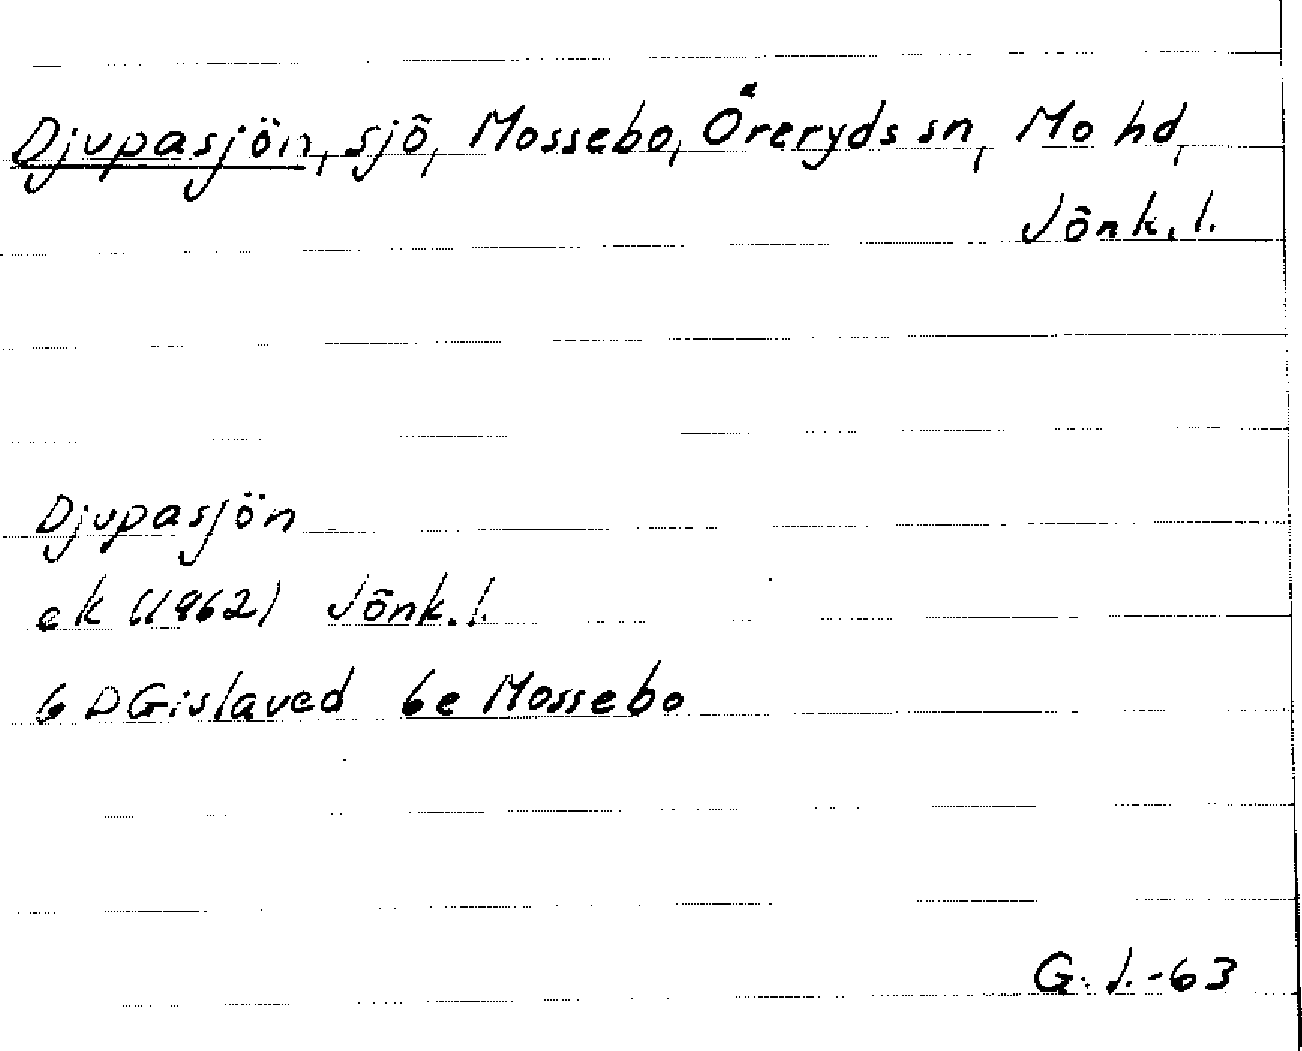 Djupasjön, sjö, Mossebo, Öreryds sn, Mo hd,
Jönk. l.
Djupasjön
ek (1962) Jönk. l.
6 D Gislaved 6e Mossebo
G. J. -63